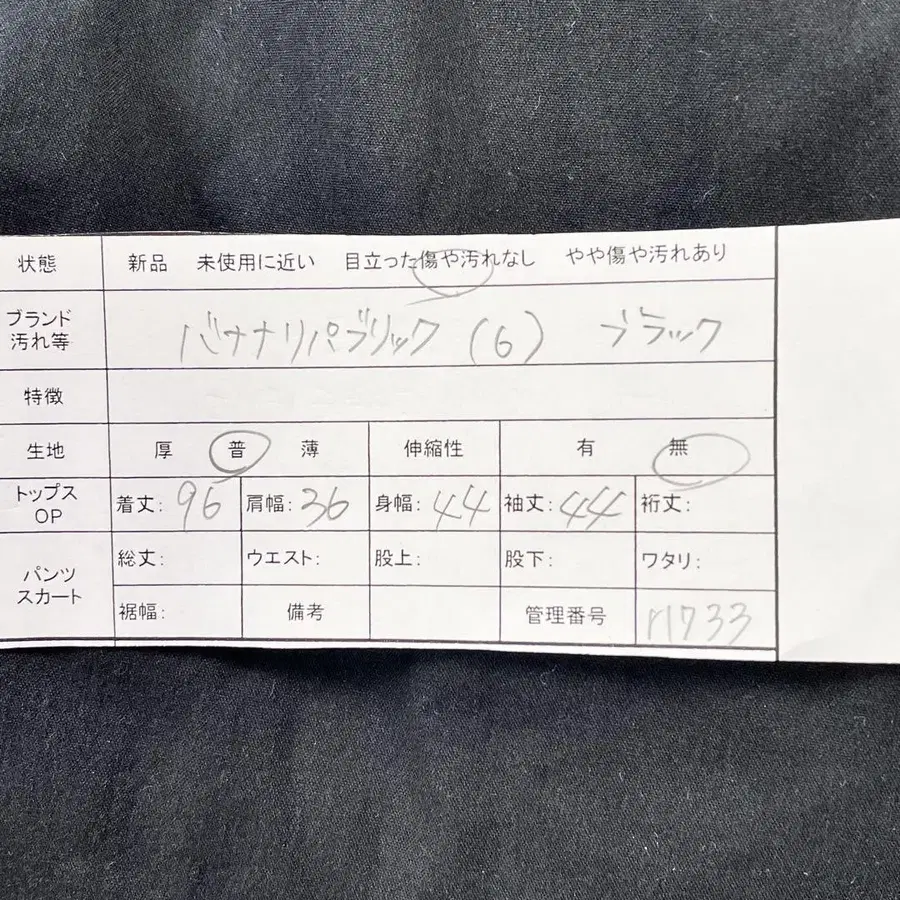 状態 新品 未使用に近い 目立った傷や汚れなし やや傷や汚れあり
ブランド
汚れ等
バナナリパブリック (6) ブラック
特徴
生地 厚 普 薄 伸縮性 有 無
トップス
OP
着丈: 96 肩幅: 36 身幅: 44 袖丈: 44 裄丈:
パンツ
スカート
総丈: ウエスト: 股上: 股下: ワタリ:
裾幅: 備考 管理番号 r1733